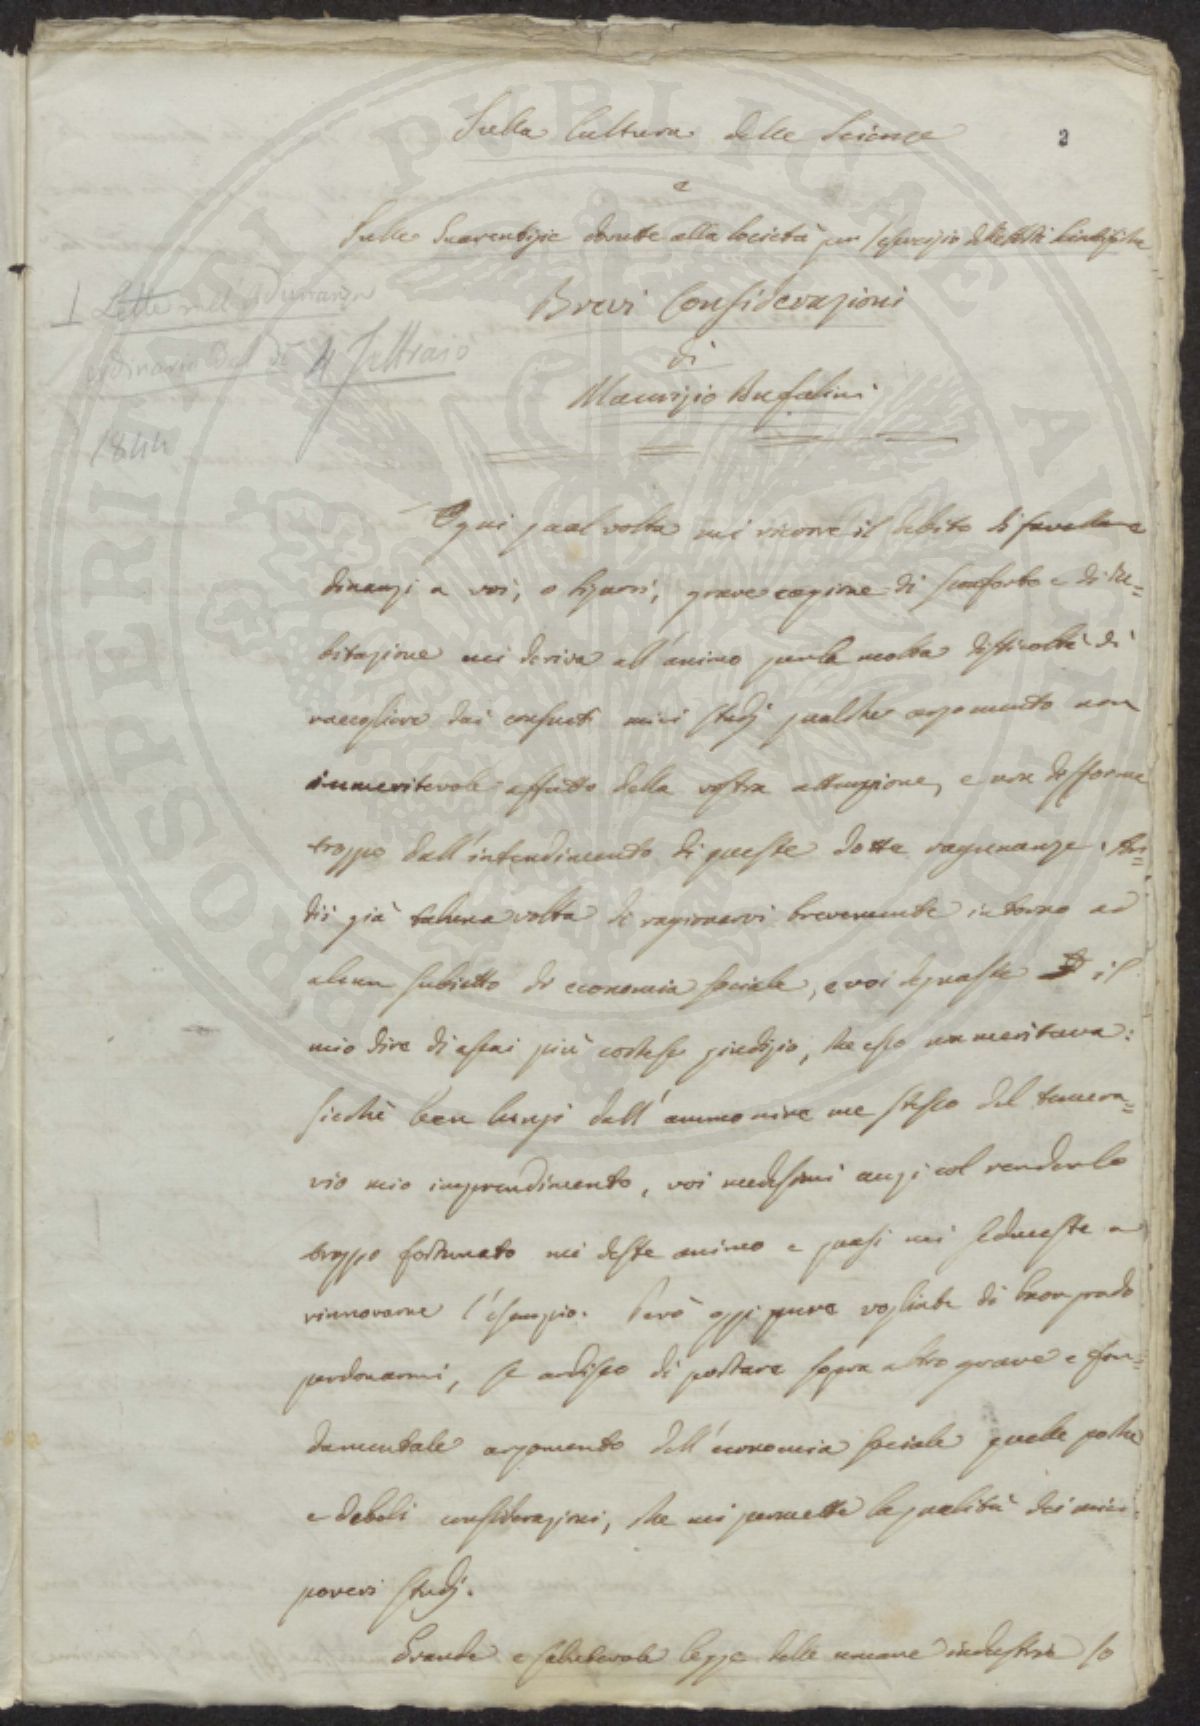 Sulla Cultura delle Scienze
2
e
Sulle Guarentigie dovute alla Società per l'esercizio delle Arti Scientifiche
Brevi Considerazioni
di
Maurizio Bufalini
Letta nell'Adunanza
ordinaria del dì 4 Febbraio
1844
Ogni qual volta mi ricorre il debito di favellare
dinanzi a voi, o Signori, grave cagione di sconforto e di Du=
bitazione mi deriva all'animo per la molta difficoltà di
raccogliere dai consueti miei studj qualche argomento non
immeritevole affatto della vostra attenzione, e non disforme
troppo dall'intendimento di queste dotte ragunanze. Ar=
dii già taluna volta di ragionarvi brevemente intorno ad
alcun subietto di economia sociale, e voi degnaste il
mio dire di assai più cortese giudizio, che esso non meritava:
sicché ben lungi dall'ammonire me stesso del temera=
rio mio imprendimento, voi medesimi anzi col renderlo
troppo fortunato mi deste animo e quasi mi seduceste a
rinnovarne l'esempio. Però oggi pure vogliate di buon grado
perdonarmi, se ardisco di portare sopra altro grave e fon=
damentale argomento dell'economia sociale quelle poche
e deboli considerazioni, che mi permette la qualità dei miei
poveri studj.
Grande e salutevole legge delle umane industrie fo
PROSPERITATI PVBLICAE AVGENDAE